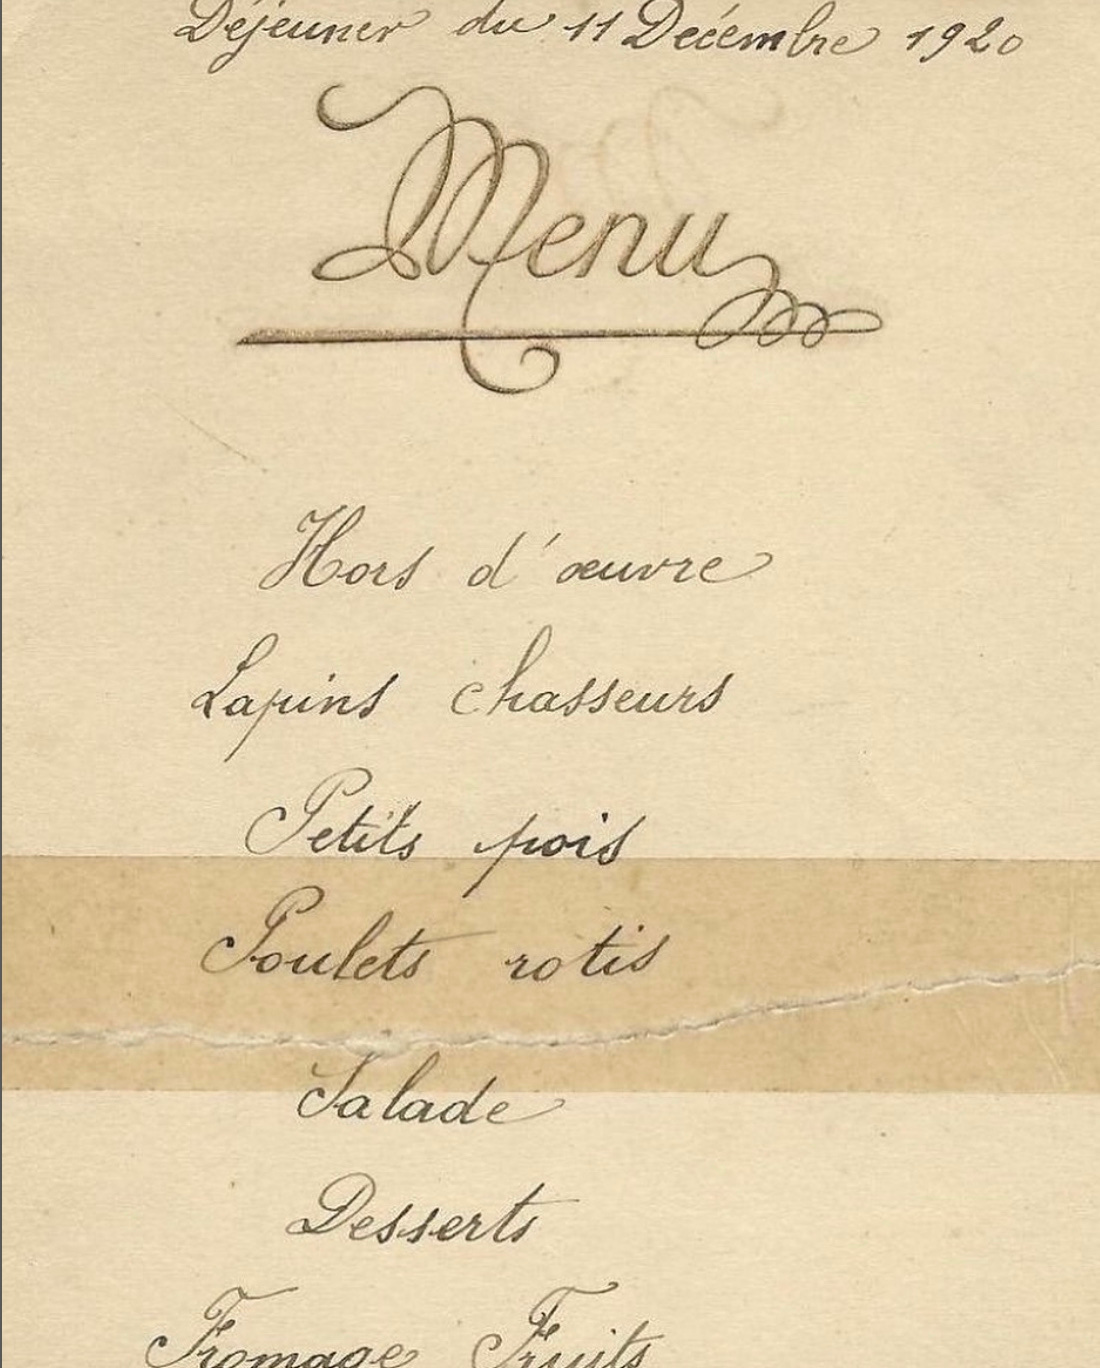 Déjeuner du 11 Décembre 1920
Menu
Hors d'œuvre
Lapins chasseurs
Petits pois
Poulets rotis
Salade
Desserts
Fromage Fruits